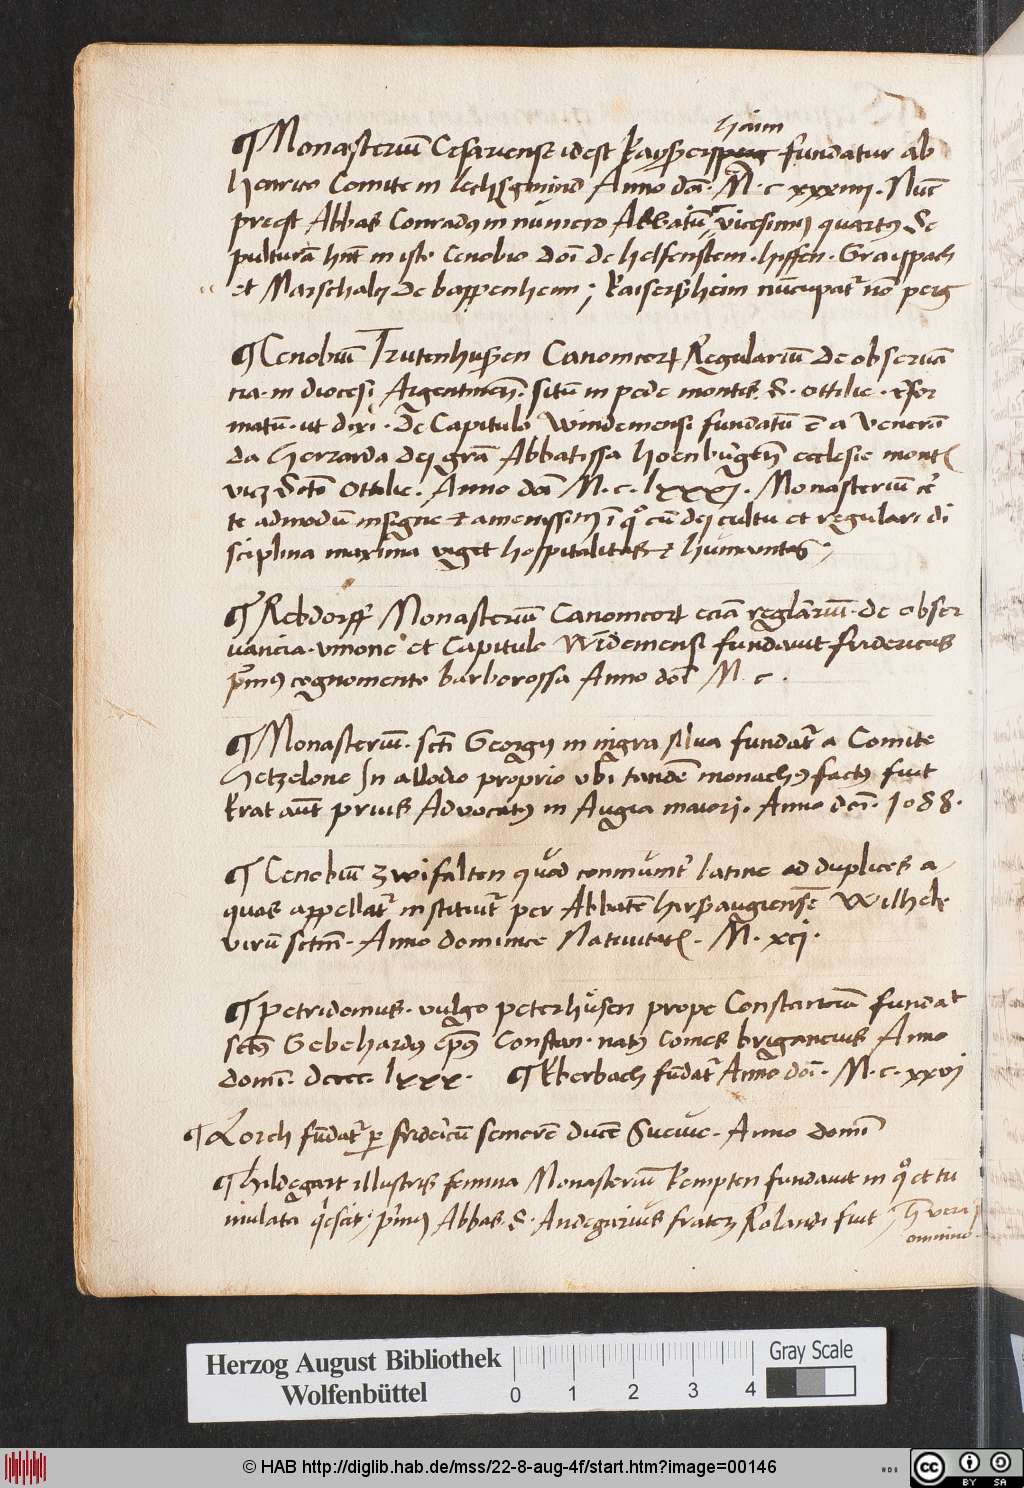 haim
¶ Monasteriū Cesariense id est Kayſersperg fundatur ab
Henrico Comite in Lechsgmünd Anno dōi. M. c xxxiiij. Nūc
preest Abbas Conradus in numero Abbatū vicesimus quartus Se
pulturā hñt in isto Cenobio Dōi de Helfenstein. Hiffen. Graispach
et Marschalci de bappenheim; Kaiserſheim nūcupatr nō perg
¶ Cenobiū Trutenhuſen Canonicorꝝ Regulariū de obseruā
cia. in diocesi Argentineñ. sitū in pede montis S. Ottilie. refor
matū. ut dixi. De Capitulo Windemensi fundatū ē a Venerā
da Herzarda dei grā Abbatissa Hoenburgeñ ecclesie montis
vicz Scte Ottilie. Anno dōi M. c. lxxxj. Monasteriū cer
te admodū insigne et amenissimū ī quo cū dei cultu et regulari di
sciplina maxima viget hospitalitas et humanitas;
¶ Rebdorff Monasteriū Canonicorꝝ eciā reglariū. de obser
uancia. vnione et Capitulo Widemensi fundauit Fridericus
primus cognomento barborossa Anno dōi M. c.
¶ Monasteriū. scti Georgij in nigra silua fundatr a Comite
Hetzelone In allodio proprio vbi tandē monachus factus fuit
Erat aūt prius Aduocatus in Augia maiori. Anno dōi. 1088.
¶ Cenobiū Zwifalten quod conuenit' latine ad duplices a-
quas appellatr instituitr per Abbatē hirsaugiensē Wilhelm
virū sctm̄. Anno dominice Natiuitatis. M. xcij.
¶ Petridomus. vulgo peterhusen prope Constantiā fundat
sctus Gebehardus ep̄us Constan. natus comes brigancius Anno
domi. dcccc. lxxx. ¶ Eberbach fundatr Anno dōi. M. c. xxvj
¶ Lorch fūdatr per fridericū seniorē ducē Sueuie. Anno domi
¶ Hildegart illustris femina Monasteriū Kempten fundauit in quo et tu
mulata quiescit; primus Abbas. S. Andegarius frater Rolandi fuit
omnino.
Herzog August Bibliothek
Wolfenbüttel
0 1 2 3 4
Gray Scale
© HAB http://diglib.hab.de/mss/22-8-aug-4f/start.htm?image=00146
HAB
cc BY SA